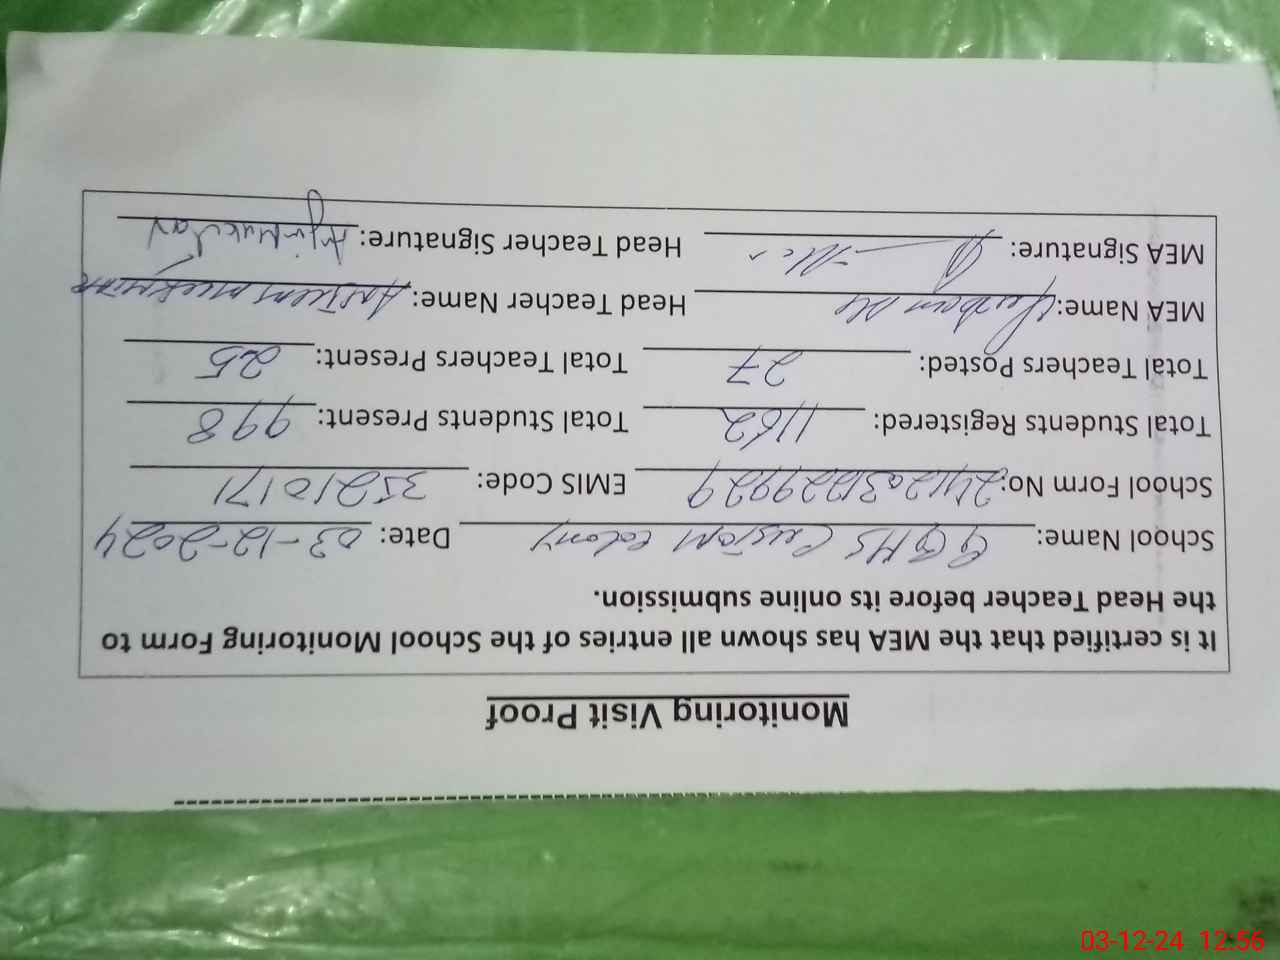 Monitoring Visit Proof
It is certified that the MEA has shown all entries of the School Monitoring Form to
the Head Teacher before its online submission.
School Name: GGHS Custom Colony Date: 03-12-2024
School Form No: EMIS Code: 35210171
Total Students Registered: 1162 Total Students Present: 998
Total Teachers Posted: 27 Total Teachers Present: 25
MEA Name: Head Teacher Name:
MEA Signature: Head Teacher Signature:
03-12-24 12:56